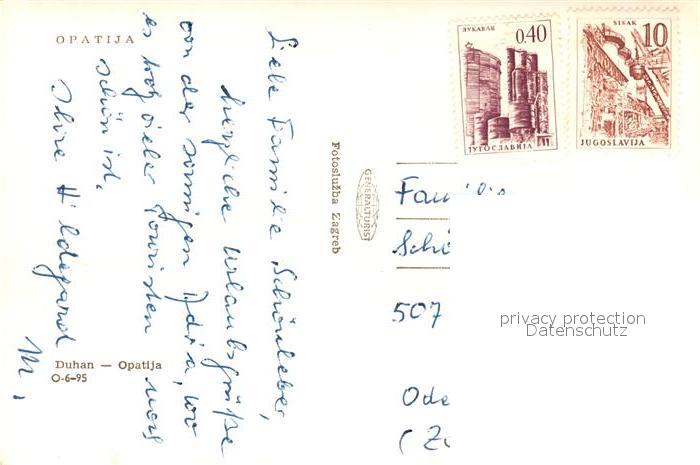 OPATIJA
Liebe Familie Schönleber,
herzliche Urlaubsgrüße
von der sonnigen Adria, wo
es trotz vieler Touristen noch
schön ist.
Ihre Hildegard
M.
Duhan — Opatija
O-6-95
Fotoslužba Zagreb
GENERALTURIST
ЛУКАВАЦ
0.40
ЈУГОСЛАВИЈА
SISAK
10
JUGOSLAVIJA
Schö
507
privacy protection
Datenschutz
Ode